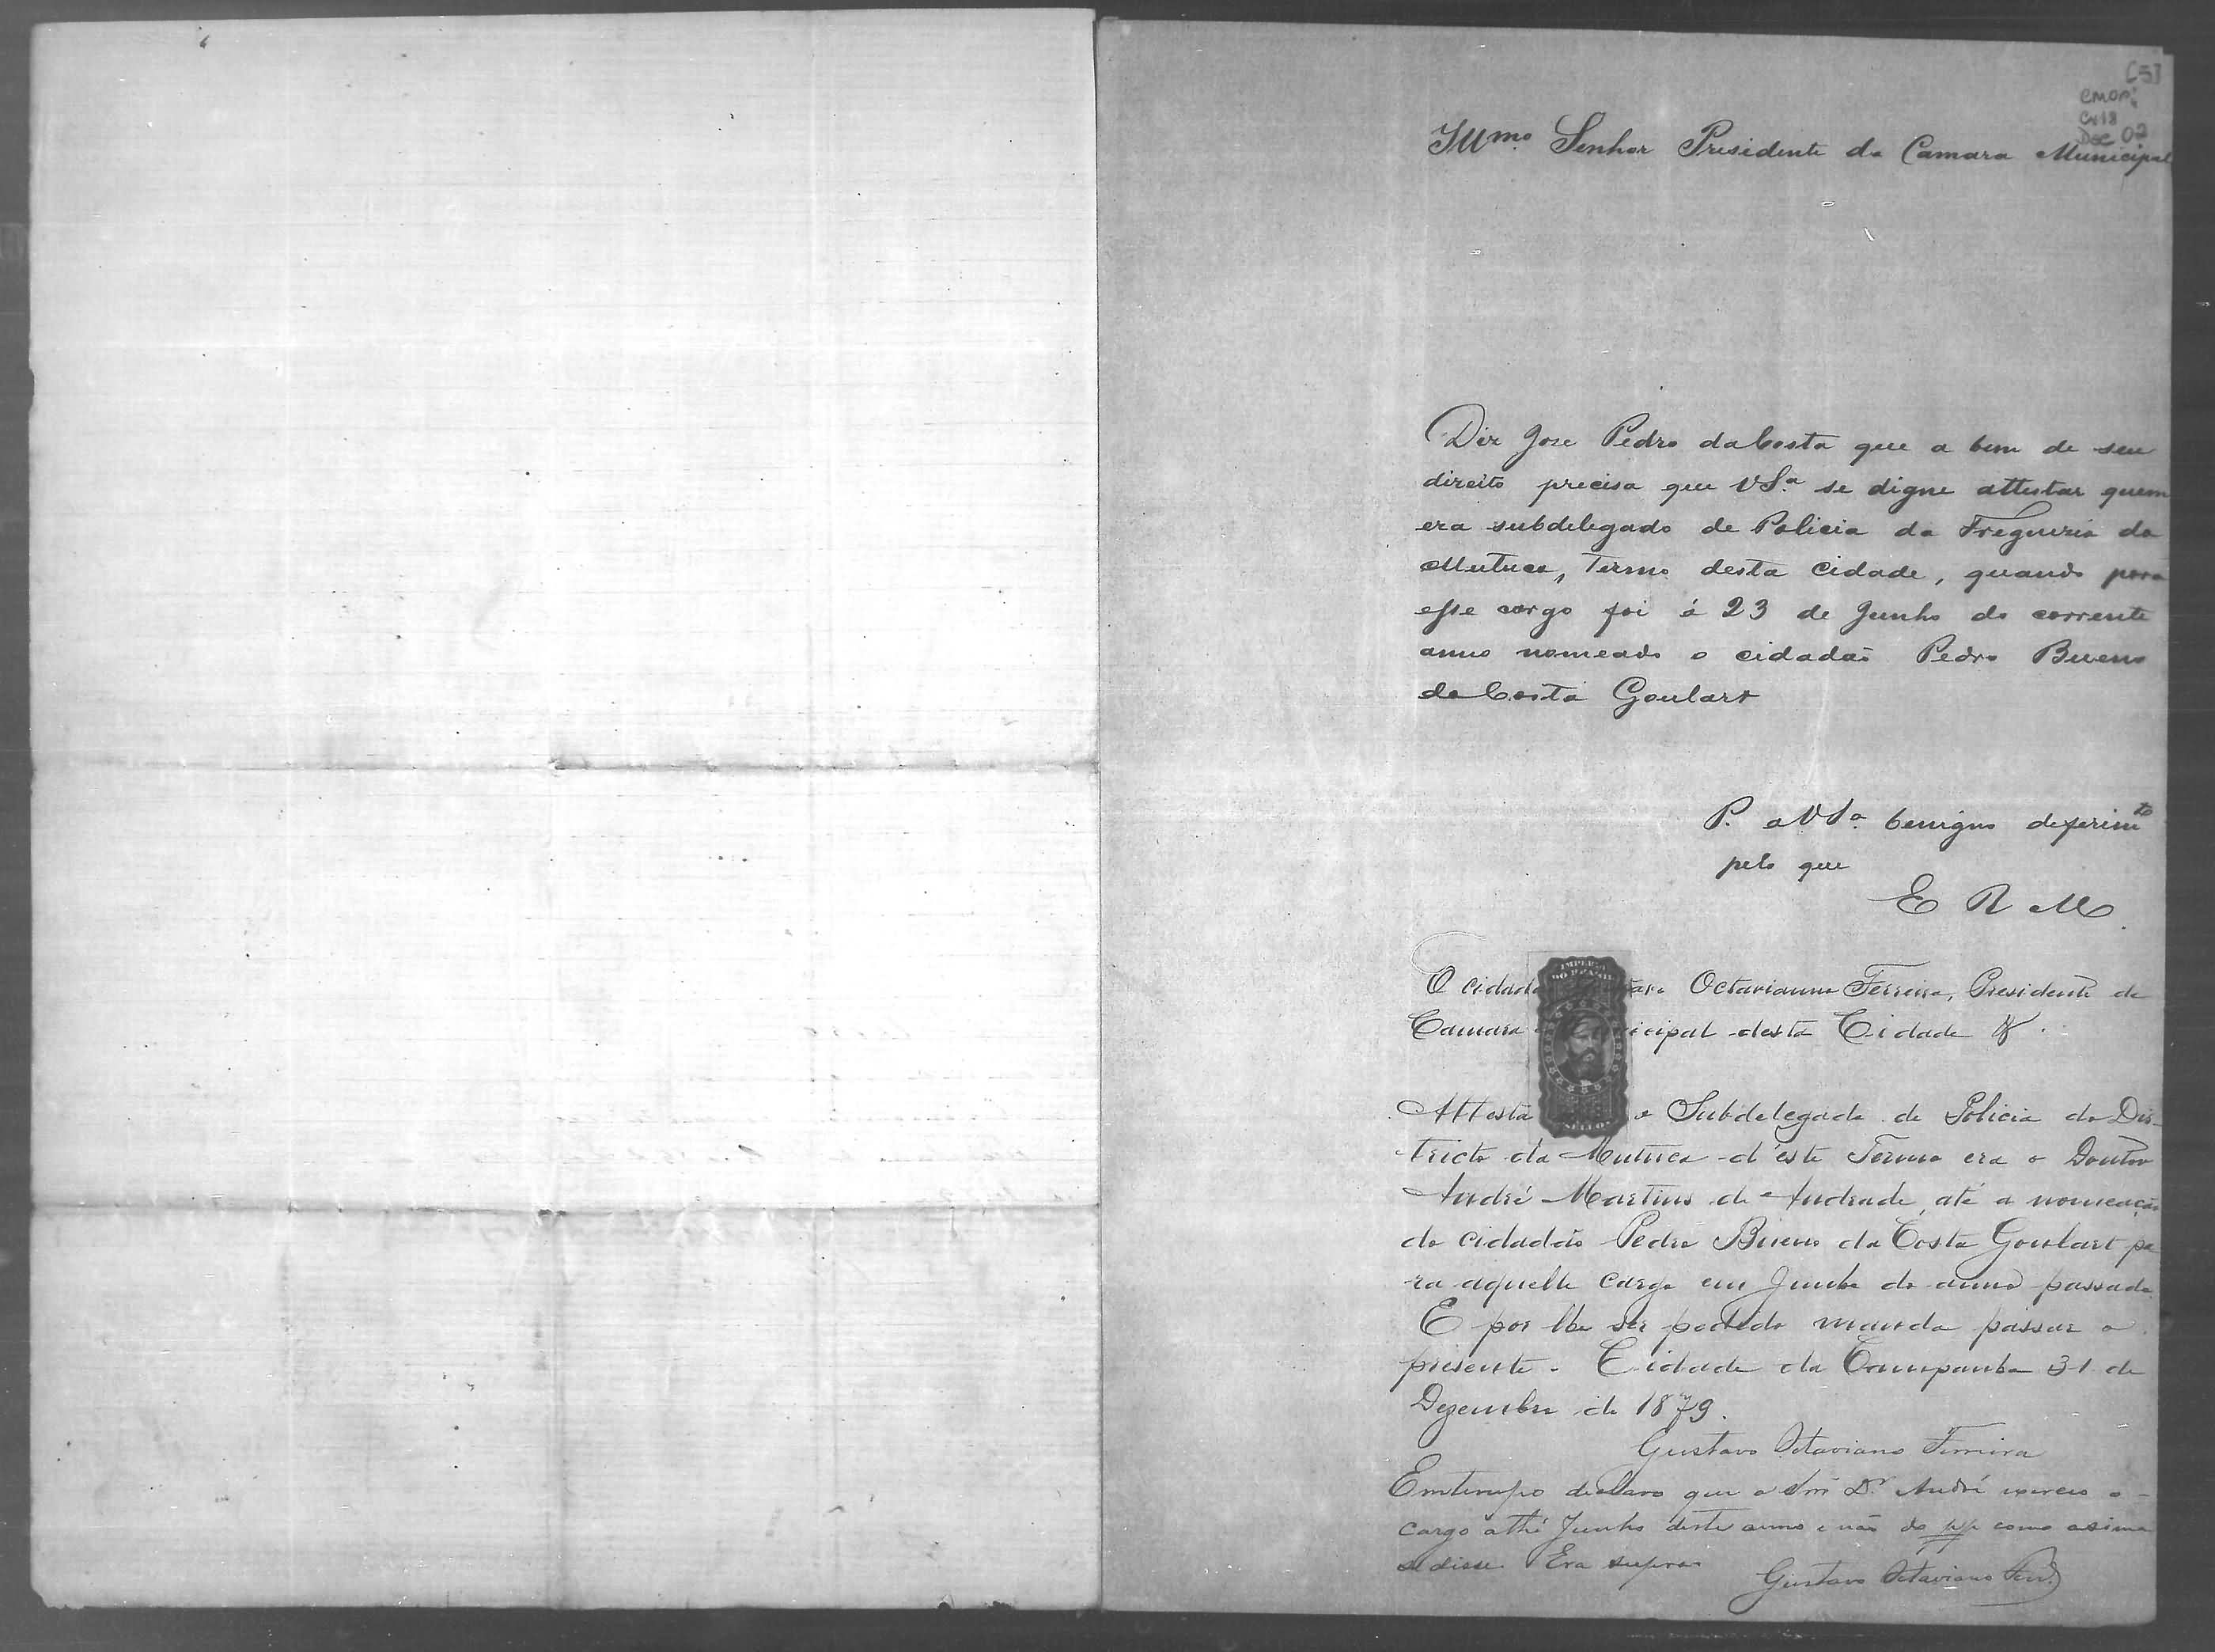 [5]
CMOP
Cx18
Doc 02
Illmo. Senhor Presidente da Camara Municipal
Diz Jose Pedro da Costa que a bem de seu
direito precisa que VSª se digne attestar quem
era subdelegado de Policia da Freguezia da
Mutuca, Termo desta Cidade, quando para
esse cargo foi á 23 de Junho do corrente
anno nomeado o cidadão Pedro Bueno
da Costa Goulart
P. a VSª benigno deferimto
pelo que
E R M
O cidadão Octavianno Ferreira, Presidente da
Camara Municipal desta Cidade &.
IMPERIO
DO BRASIL
SELLO
Attesta o Subdelegado de Policia do Dis-
tricto da Mutuca d'este Termo era o Doutor
André Martins de Andrade, até a nomeação
do cidadão Pedro Bueno da Costa Goulart pa
ra aquelle cargo em Junho do anno passado.
E por lhe ser pedido manda passar o
presente. Cidade da Campanha 31 de
Dezembro de 1879.
Gustavo Octaviano Ferreira
Emtempo declaro que o Snr Dr. André exerceo o
cargo athé Junho deste anno e não do pp como asima
se disse. Era supra
Gustavo Octaviano Ferrª